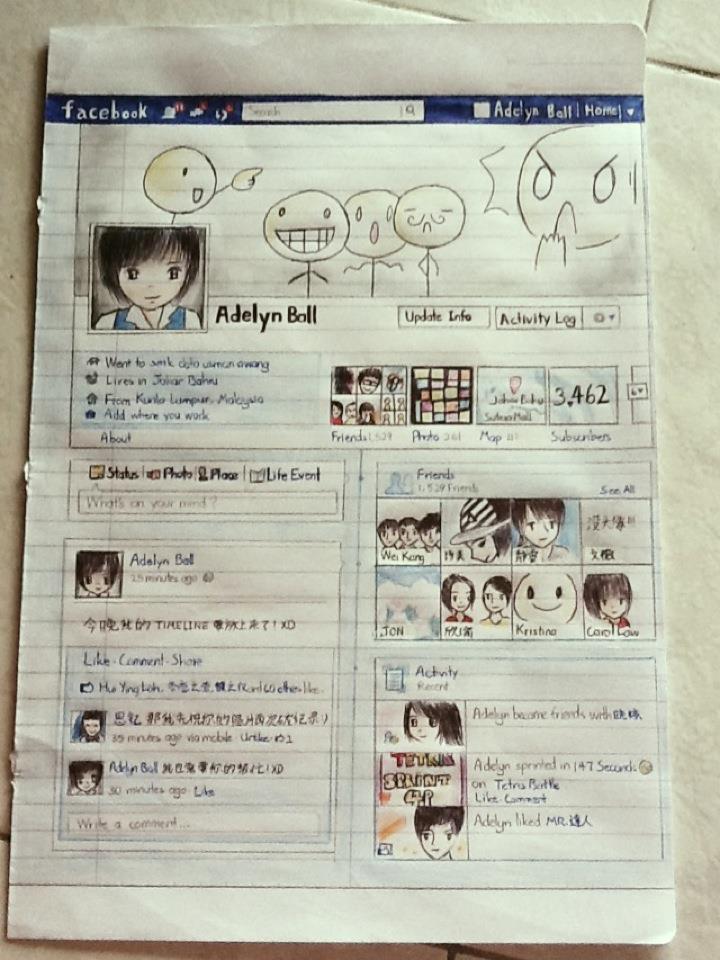 facebook Search Adelyn Ball | Home |
Adelyn Ball
Update Info
Activity Log
Went to smk dato usman awang
Lives in Johor Bahru
From Kuala Lumpur, Malaysia
Add where you work
About
3,462
Friends 1,529
Photo 261
Map
Subscribers
Status Photo Place Life Event
What's on your mind?
Adelyn Ball
25 minutes ago
今晚我的 TIMELINE 要放上来了! XD
Like · Comment · Share
Hui Ying Loh,
like.
39 minutes ago via mobile
Adelyn Ball
XD
30 minutes ago · Like
Write a comment...
Friends
1,529 Friends
See All
Wei Kang
静雯
JON
欣俞
Kristina
Carol Low
Activity
Recent
Adelyn became friends with
TETRIS SPRINT
Adelyn sprinted in 147 Seconds
on Tetris Battle
Like · Comment
Adelyn liked MR.達人